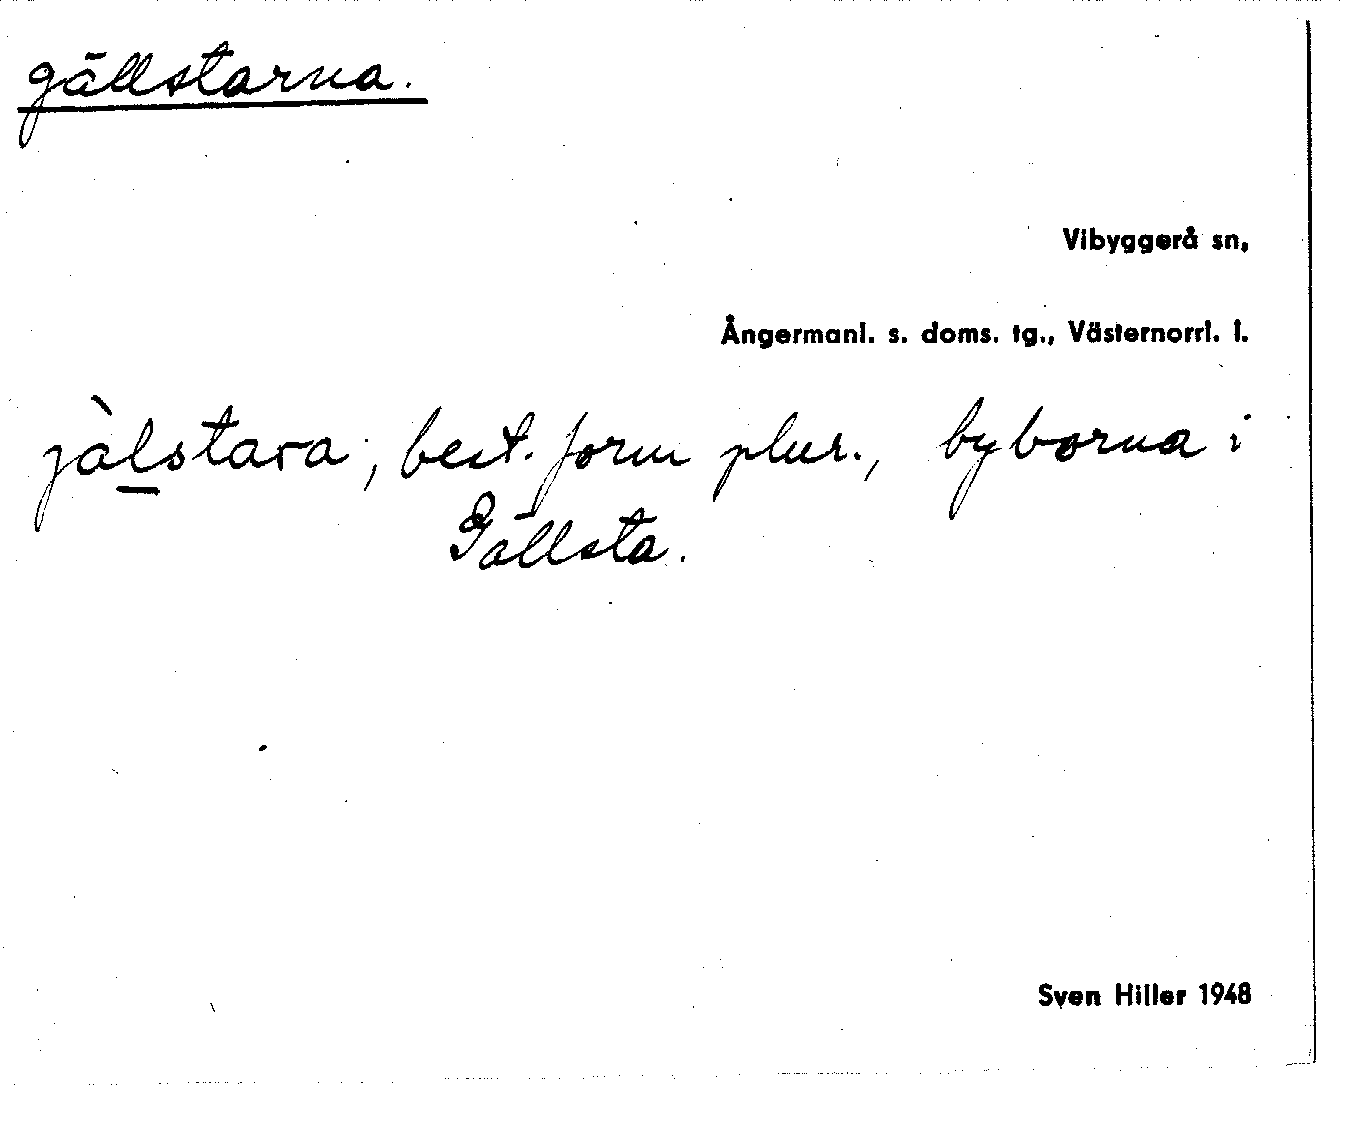 gällstarna.
Vibyggerå sn,
Ångermanl. s. doms. tg., Västernorrl. l.
jàlstara, best. form plur., byborna i
Gällsta.
Sven Hiller 1948